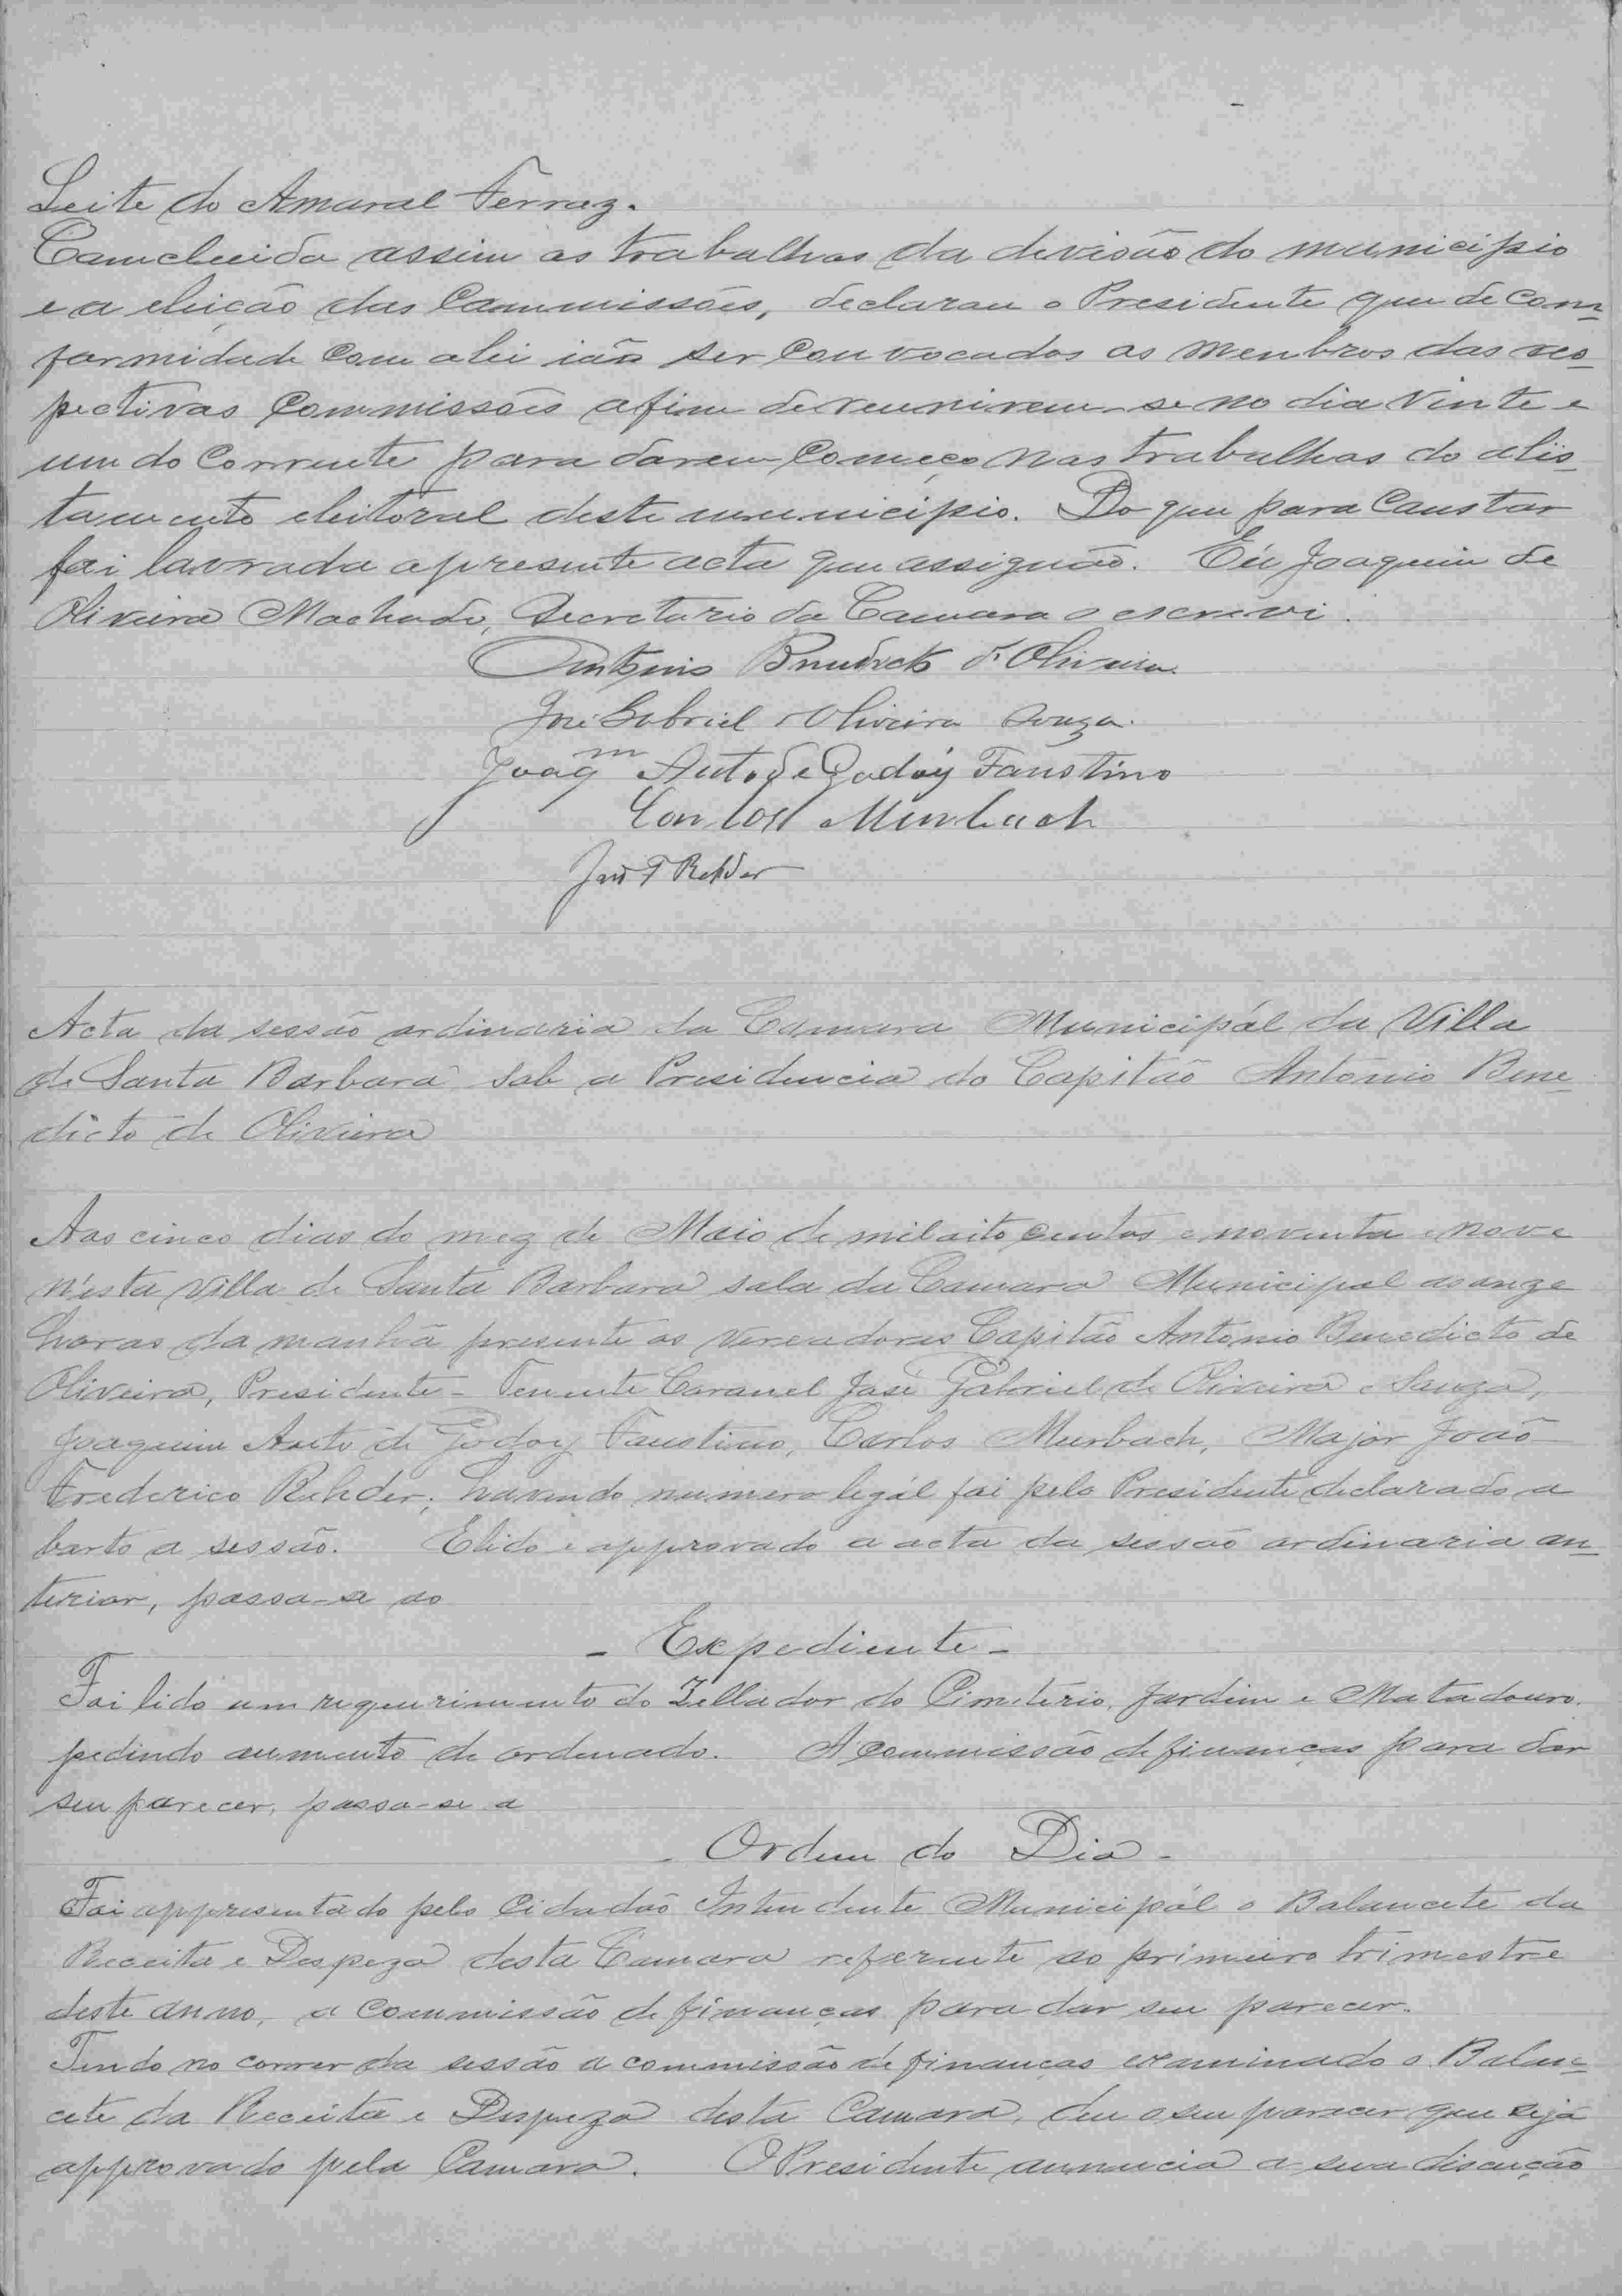 Leite do Amaral Ferraz.
Concluida assim os trabalhos da divisão do municipio
e a eleição das Commissões, declarou o Presidente que de con-
formidade com a lei ião ser convocados os membros das res-
pectivas Commissões afim de reunirem-se no dia vinte e
um do corrente para darem começo nos trabalhos do alis-
tamento eleitoral deste municipio. Do que para constar
foi lavrada a presente acta que assignão. Eu Joaquim de
Oliveira Machado, Secretario da Camara o escrevi.
Antonio Benedicto d'Oliveira
José Gabriel Oliveira Souza.
Joaqm Auto de Godóy Faustino
Carlos Murbach
João F Rehder
Acta da sessão ordinaria da Camara Municipál da Villa
de Santa Barbara sob a Presidencia do Capitão Antonio Bene-
dicto de Oliveira
Aos cinco dias do mez de Maio de mil oito centos e noventa e nove
n'esta Villa de Santa Barbara sala da Camara Municipal as onze
horas da manhã presente os vereadores Capitão Antonio Benedicto de
Oliveira, Presidente - Tenente Coronel José Gabriel de Oliveira e Souza,
Joaquim Auto de Godoy Faustino, Carlos Murbach, Major João
Frederico Rehder; havendo numero legál foi pelo Presidente declarado a
berto a sessão. E lido e approvado a acta da sessão ordinaria an-
terior, passa-se ao
- Expediente -
Foi lido um requerimento do Zellador do Cimiterio, Jardim e Matadouro.
pedindo aumento de ordenado. A commissão de finanças para dar
seu parecer, passa-se a
- Ordem do Dia -
Foi appresentado pelo Cidadão Intendente Municipál o Balancete da
Receita e Despeza desta Camara referente ao primeiro trimestre
deste anno, a commissão de finanças para dar seu parecer.
Tendo no correr da sessão a commissão de finanças examinado o Balan-
cete da Receita e Despeza desta Camara, deu o seu parecer que seja
approvado pela Camara. O Presidente annuncia a sua discução